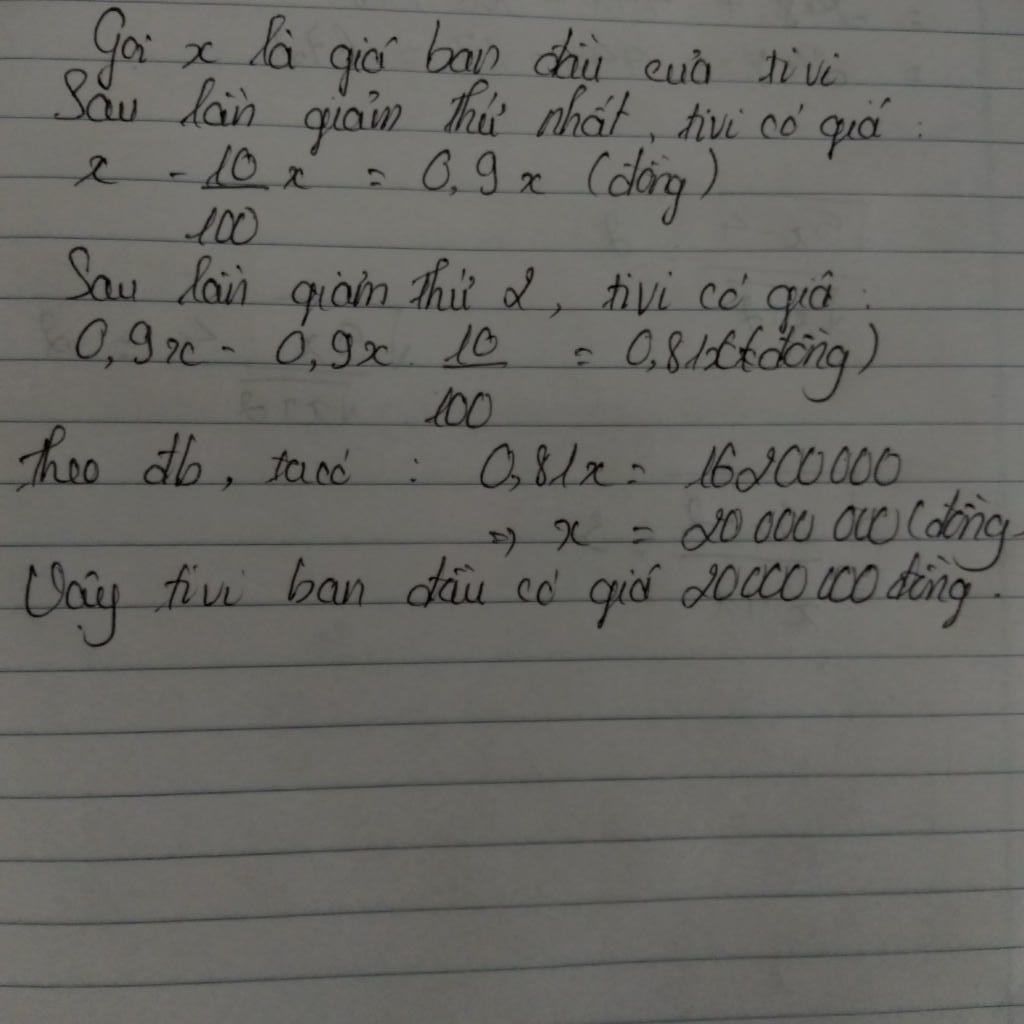 Gọi x là giá ban đầu của tivi
Sau lần giảm thứ nhất, tivi có giá :
x - 10/100 x = 0,9x (đồng)
Sau lần giảm thứ 2, tivi có giá :
0,9x - 0,9x . 10/100 = 0,81x (đồng)
Theo đb, ta có : 0,81x = 16200000
=> x = 20 000 000 (đồng
Vậy tivi ban đầu có giá 20000000 đồng.